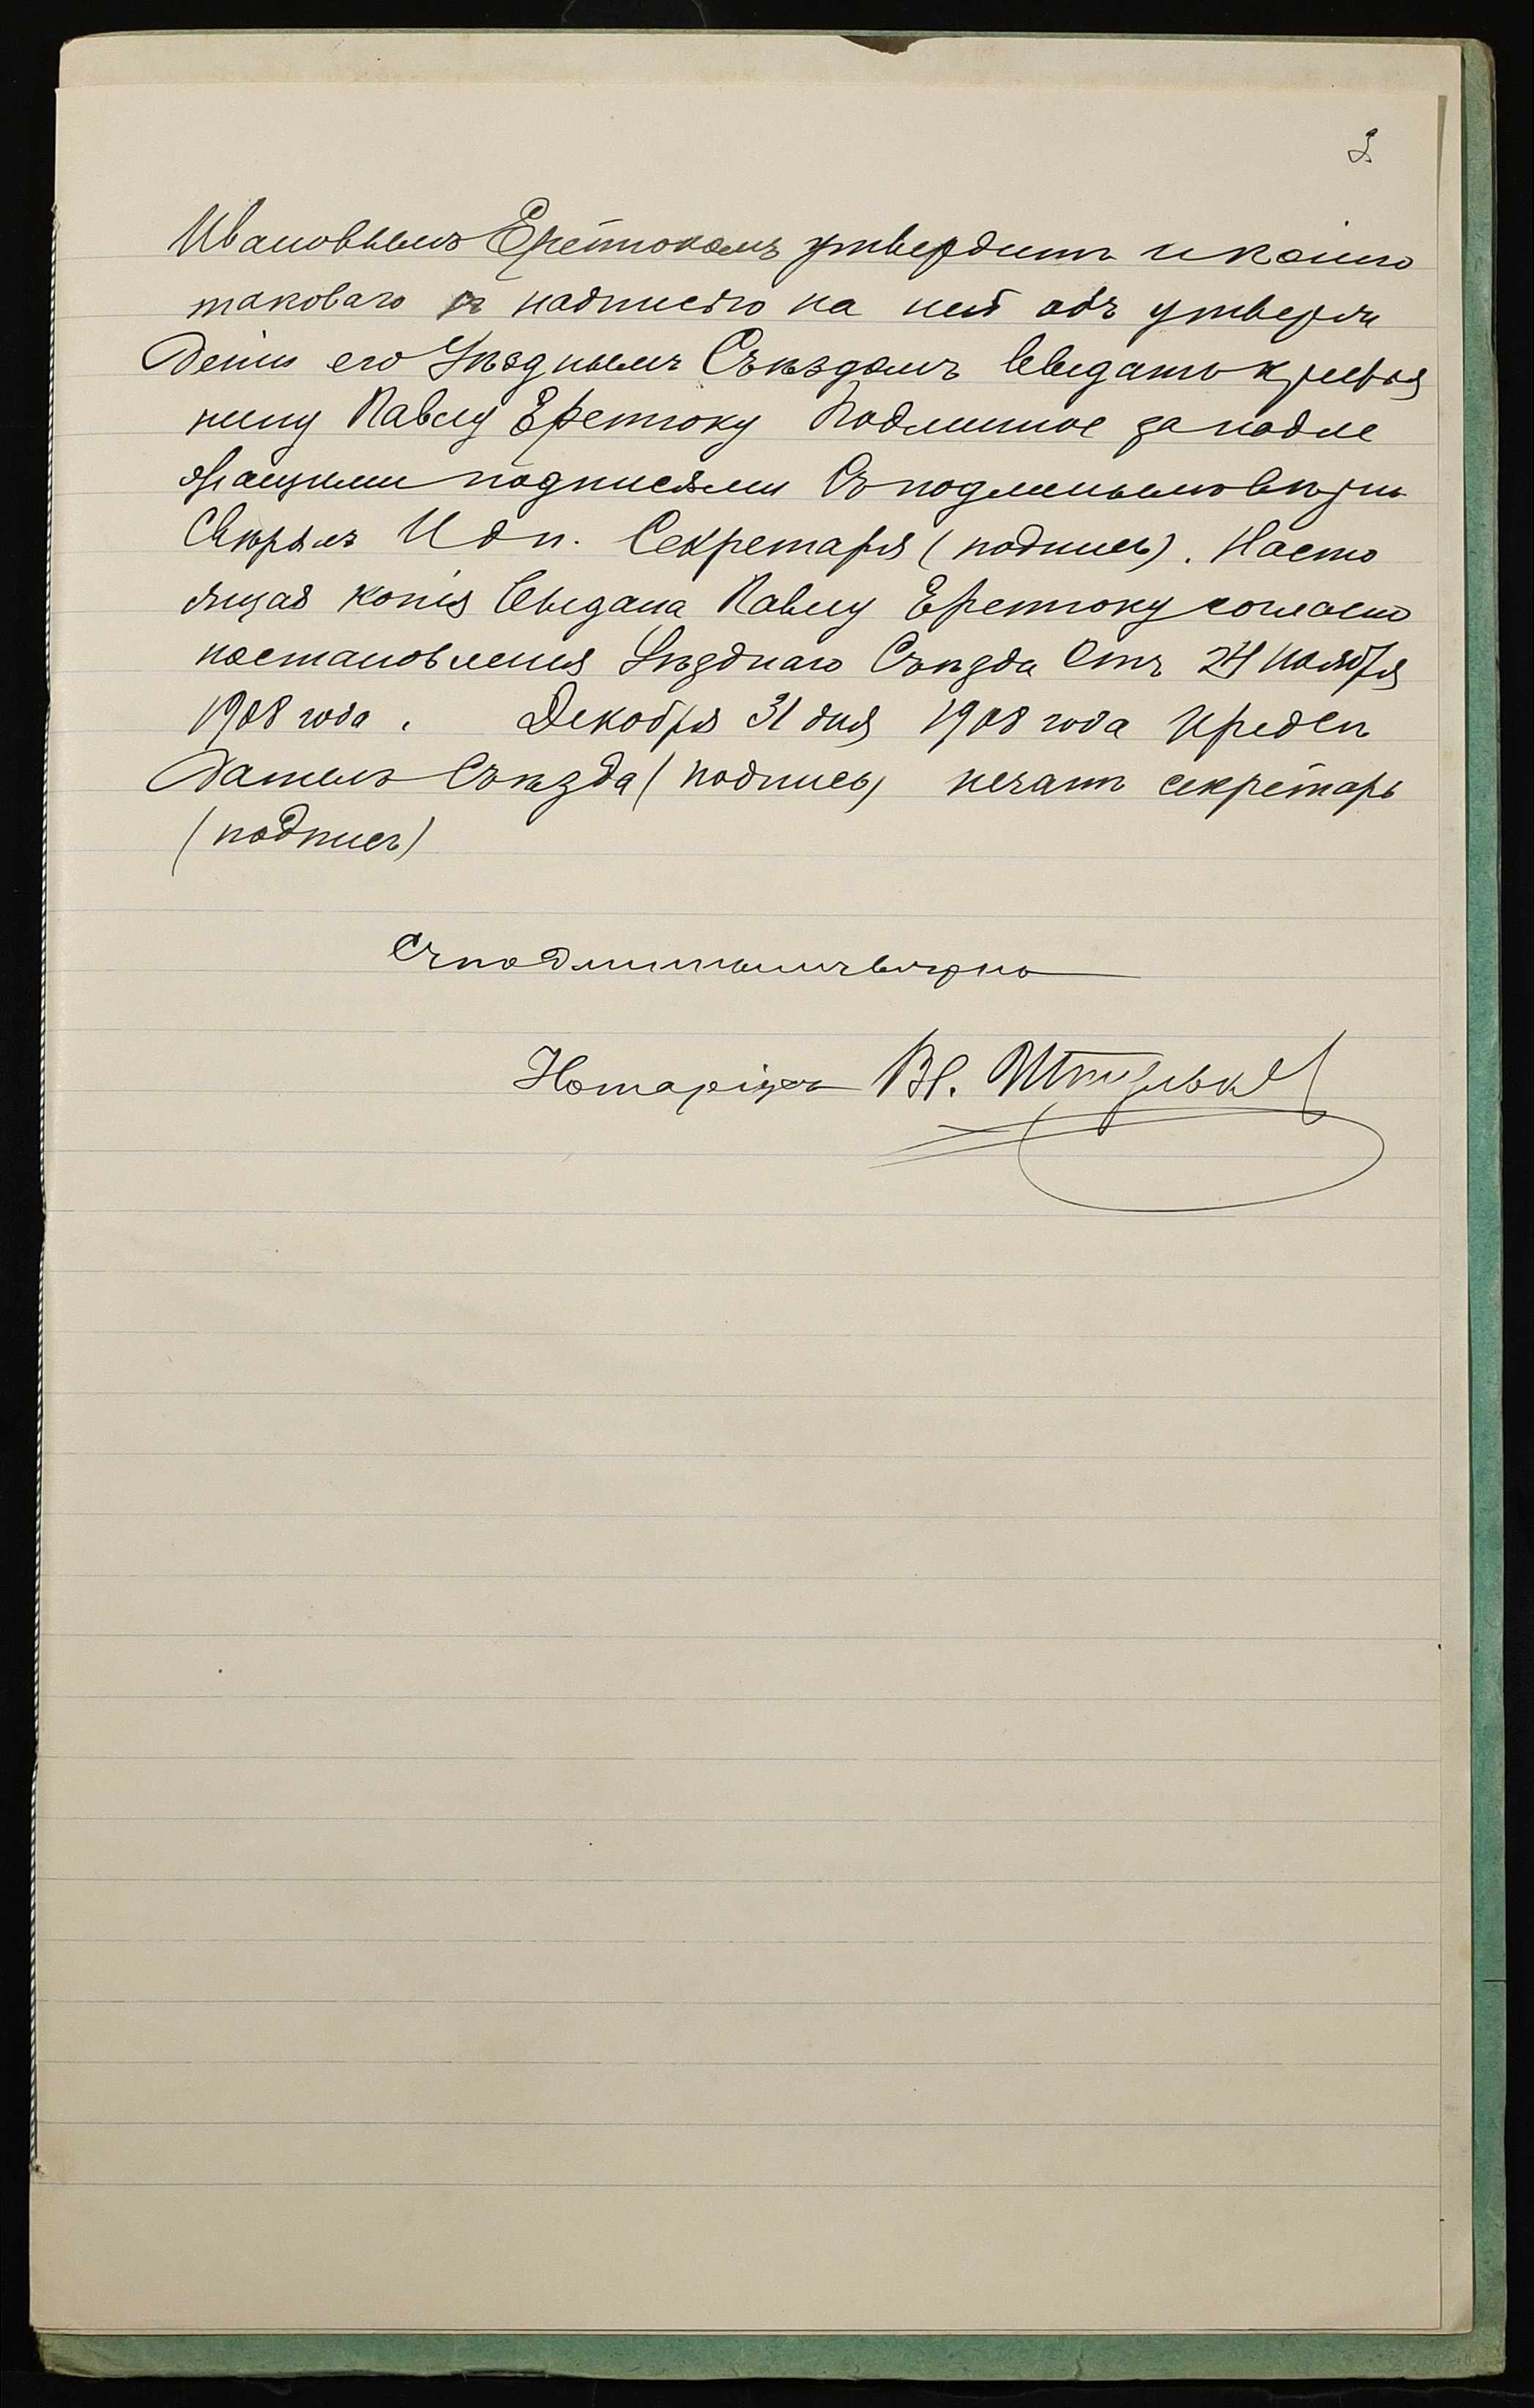 3.
Ивановымъ Еретпокомъ утвердить и копию
таковаго съ надписью на ней объ утверж
деніи его Уѣзднымъ Съѣздомъ выдать крестья
нину Павлу Еретпоку Подлинное за надле
жащими подписями Съ подлиннымъ вѣрно
Свѣрялъ И д п. Секретаря (подпись). Насто
ящая копія выдана Павлу Еретпоку согласно
постановленія Уѣзднаго Съѣзда отъ 24 Ноября
1908 года. Декабря 31 дня 1908 года Предсѣ
датель Съѣзда (подпись) печать секретарь
(подпись)
Съ подлиннымъ вѣрно
Нотаріусъ Вл.